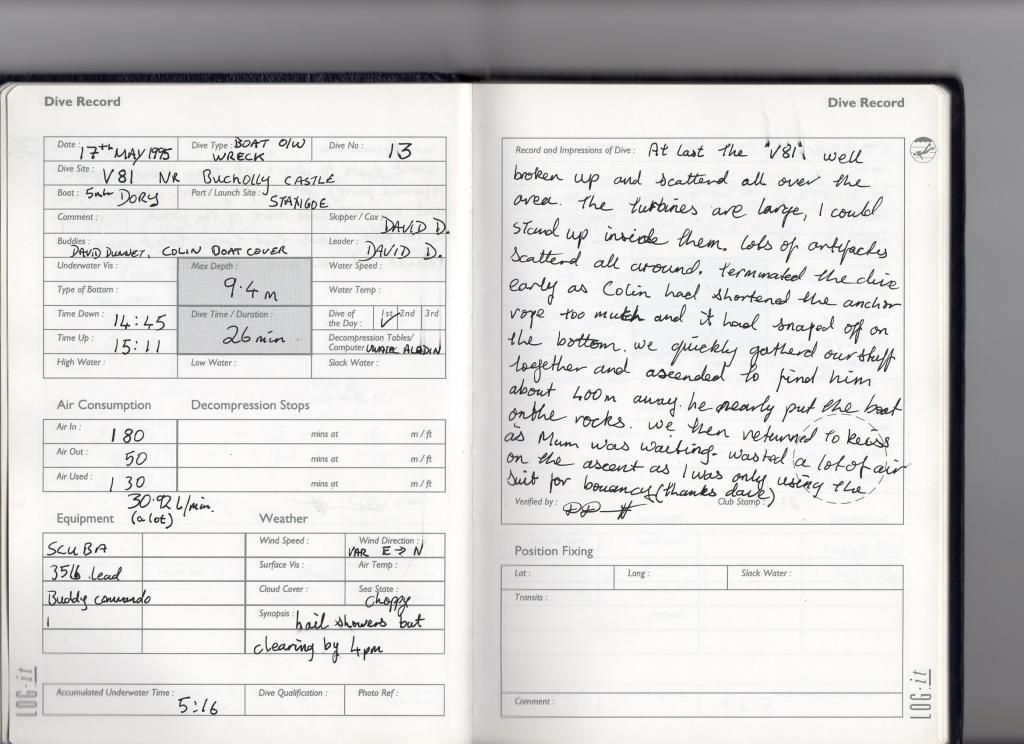 Dive Record
Date : 17th MAY 1995 Dive Type : BOAT O/W WRECK Dive No : 13
Dive Site : V81 NR BUCHOLLY CASTLE
Boat : 5mtr DORY Port / Launch Site : STAXIGOE
Comment : Skipper / Cox : DAVID D.
Buddies : DAVID DUNNET, COLIN BOAT COVER Leader : DAVID D.
Underwater Vis : Max Depth : 9.4m Water Speed :
Type of Bottom : Water Temp :
Time Down : 14:45 Dive Time / Duration : 26 min. Dive of the Day : 1st ✓ 2nd 3rd
Time Up : 15:11 Decompression Tables/ Computer UWATEC ALADIN
High Water : Low Water : Slack Water :
Air Consumption Decompression Stops
Air In : 180 mins at m / ft
Air Out : 50 mins at m / ft
Air Used : 130 mins at m / ft
30.92 L/min.
(a lot)
Equipment Weather
SCUBA Wind Speed : Wind Direction : VAR E→N
35lb lead Surface Vis : Air Temp :
Buddy commando Cloud Cover : Sea State : Choppy
Synopsis : hail showers but
clearing by 4pm
LOG·it
Accumulated Underwater Time : 5:16 Dive Qualification : Photo Ref :
Dive Record
Record and Impressions of Dive : At last the "V81". well
broken up and scattend all over the
area. The turbines are large, I could
stand up inside them. Lots of artifacts
scattend all around. Terminated the dive
early as Colin had shortened the anchor
rope too mutch and it had snaped off on
the bottom. we quickly gatherd our stuff
together and ascended to find him
about 400m away. he nearly put the boat
on the rocks. We then returned to keiss
as Mum was waiting. wasted a lot of air
on the ascent as I was only using the
suit for bouancy (thanks dave)
Verified by : Club Stamp :
Position Fixing
Lat : Long : Slack Water :
Transits :
Comment :
LOG·it